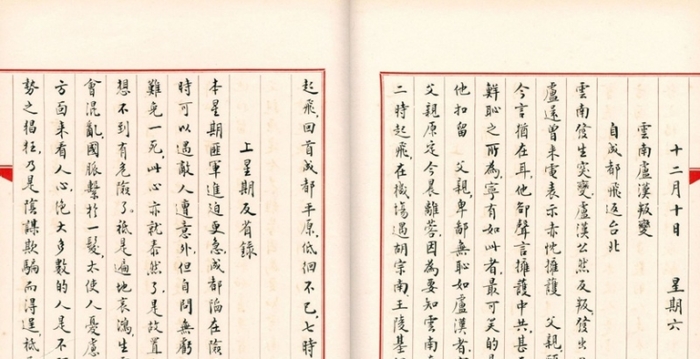 十二月十日 星期六
雲南盧漢叛變
自成都飛返台北
雲南發生突變盧漢公然反叛發出
盧還曾來電表示赤忱擁護 父親
今言猶在耳他卻聲言擁護中共甚
鮮恥之所為寧有如此者最可笑的是
他扣留 父親卑鄙無恥如盧漢者
父親原定今晨離蓉因為要知雲南
二時起飛在機場遇胡宗南王陵基
起飛回首成都平原低徊不已七時
上星期反省錄
本星期匪軍進迫更急成都陷在險
時可以遇敵人遭意外但自問無虧
難免一死此心亦就泰然了是故置
想不到有危險了祗是遍地哀鴻生
會混亂國脈繫於一髮太使人憂慮
方面來看人心絕大多數的人是不
勢之猖狂乃是陰謀欺騙而得逞祗